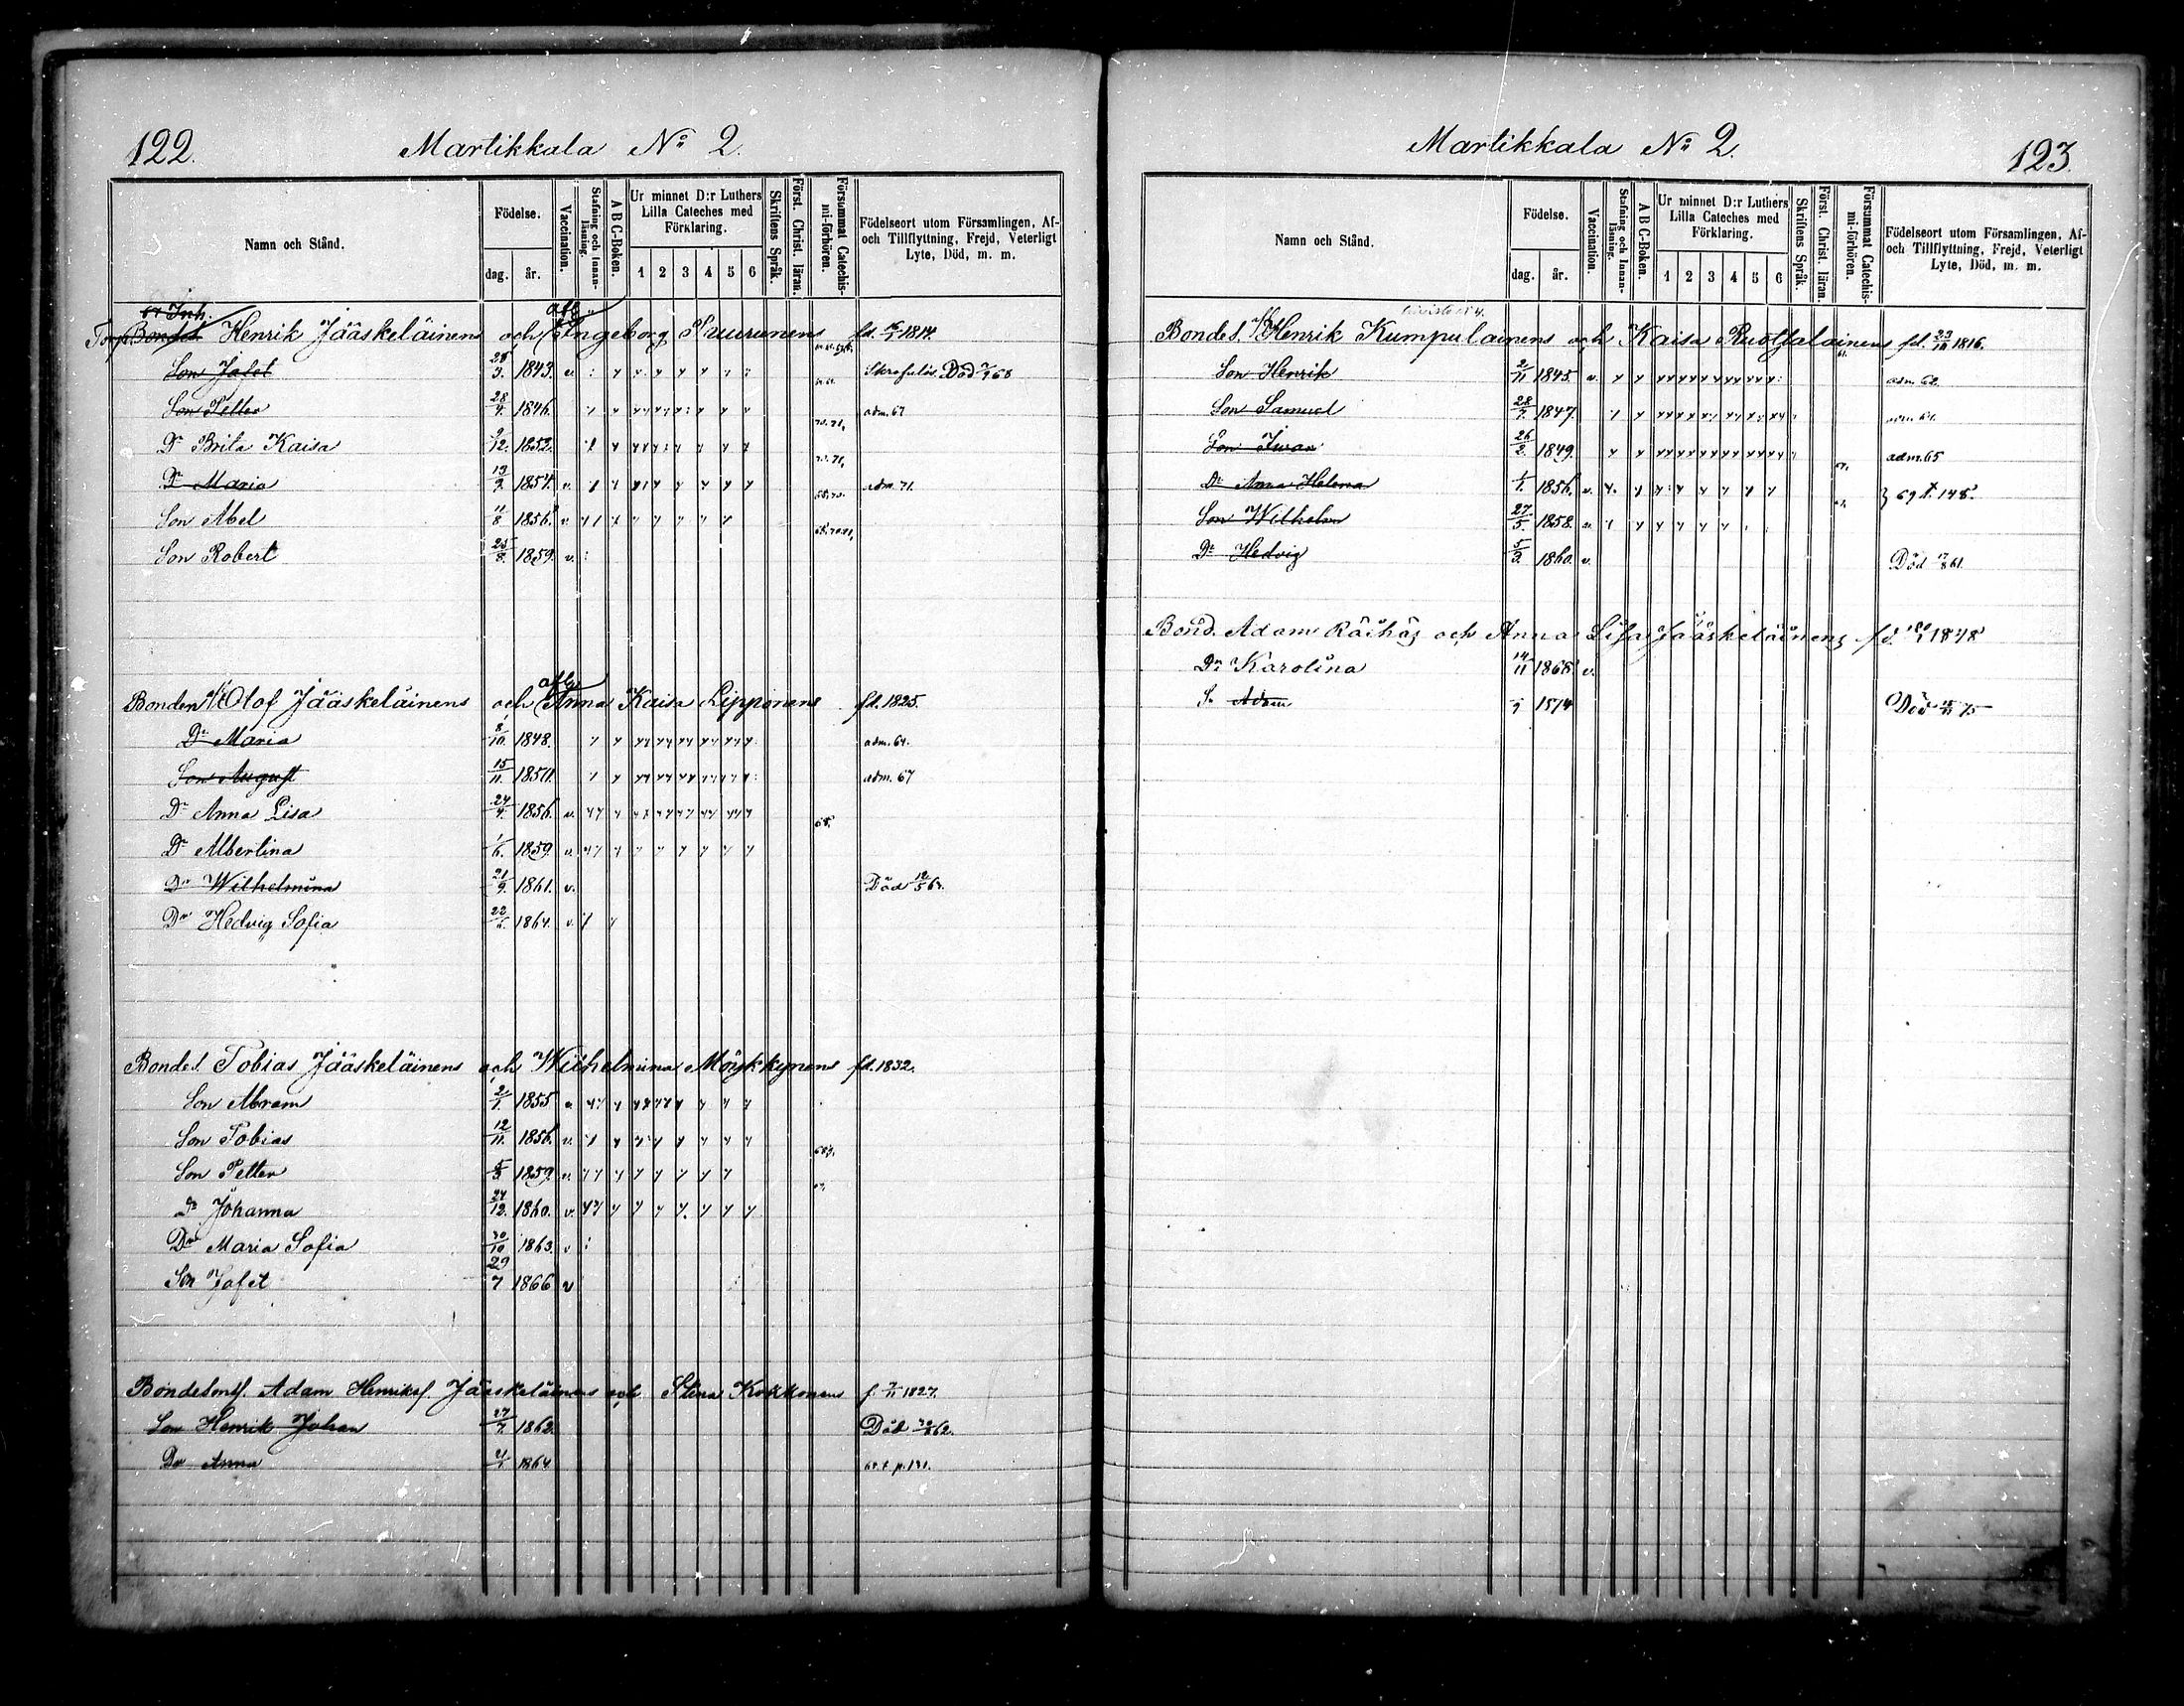 122. Martikkala No 2.
Namn och Stånd.
Födelse.
dag. år.
Vaccination.
Stafning och Innanläsning.
A B C-Boken.
Ur minnet D:r Luthers Lilla Cateches med Förklaring.
1 2 3 4 5 6
Skriftens Språk.
Först. Christ. läran.
Försummat Catechismi-förhören.
Födelseort utom Församlingen, Af- och Tillflyttning, Frejd, Veterligt Lyte, Död, m. m.
Inh.
Torp Bonden Henrik Jääskeläinens och Ingeborg Puurunens fd. 1814.
Son Jafet 28/3. 1843. v. Skrofulös. Död 68
Son Petter 28/4. 1846. adm. 67
Dr Brita Kaisa 9/12. 1852. 70.71,
Dr Maria 13/9. 1854. v. 70.71, adm. 71.
Son Abel 11/8 1856. v.
Son Robert 25/8. 1859. v.
Bonden Olof Jääskeläinens och Anna Kaisa Lipponens fd. 1825.
Dr Maria 8/10. 1848. adm. 64.
Son August 15/11. 1850. adm. 67
Dr Anna Lisa 24/4. 1856. v.
Dr Albertina 1/6. 1859. v. 68,
Dr Wilhelmina 21/9. 1861. v. Död 12/5 67.
Dr Hedvig Sofia 22/6. 1864. v.
Bonde s. Tobias Jääskeläinens och Wilhelmina Möykkynens fd. 1832.
Son Abram 2/1. 1855 v.
Son Tobias 12/11. 1856. v.
Son Petter 5/3 1859. v.
Dr Johanna 24/12. 1860. v.
Dr Maria Sofia 30/10 1863. v
Son Jafet 29/7 1866 v
Bondesons. Adam Henriks s. Jääskeläinens och Stina Kokkonens f. 7/11 1827.
Son Henrik Johan 27/7. 1862. Död 62.
Dr Anna 1864 p. 131.
Martikkala No 2. 123.
Namn och Stånd.
Födelse.
dag. år.
Vaccination.
Stafning och Innanläsning.
A B C-Boken.
Ur minnet D:r Luthers Lilla Cateches med Förklaring.
1 2 3 4 5 6
Skriftens Språk.
Först. Christ. läran.
Försummat Catechismi-förhören.
Födelseort utom Församlingen, Af- och Tillflyttning, Frejd, Veterligt Lyte, Död, m. m.
Bonde s. Henrik Kumpulainens och Kaisa Ruotsalainens fd. 23/10 1816.
Son Henrik 2/11 1845. v. adm. 62.
Son Samuel 28/7. 1847.
Son Iwar 26/2. 1849. adm. 65
Dr Anna Helena 1/1. 1856. v. 69 t. 148.
Son Wilhelm 27/5. 1858. v.
Dr Hedvig 5/3. 1860. v. Död 17/8 61.
Bond. Adam Räihäs och Anna Lisa Jääskeläinens
Dr Karolina 14/11 1868. v.
S. Adam 1874 Död 75